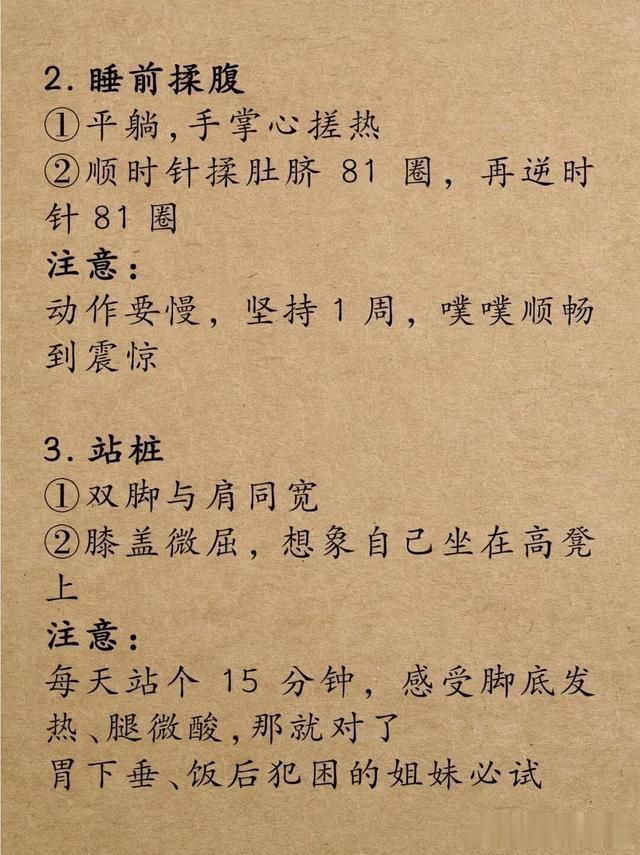 2. 睡前揉腹
①平躺,手掌心搓热
②顺时针揉肚脐 81 圈，再逆时
针81圈
注意：
动作要慢，坚持1周，噗噗顺畅
到震惊
3. 站桩
①双脚与肩同宽
②膝盖微屈，想象自己坐在高凳
上
注意：
每天站个 15 分钟，感受脚底发
热、腿微酸,那就对了
胃下垂、饭后犯困的姐妹必试